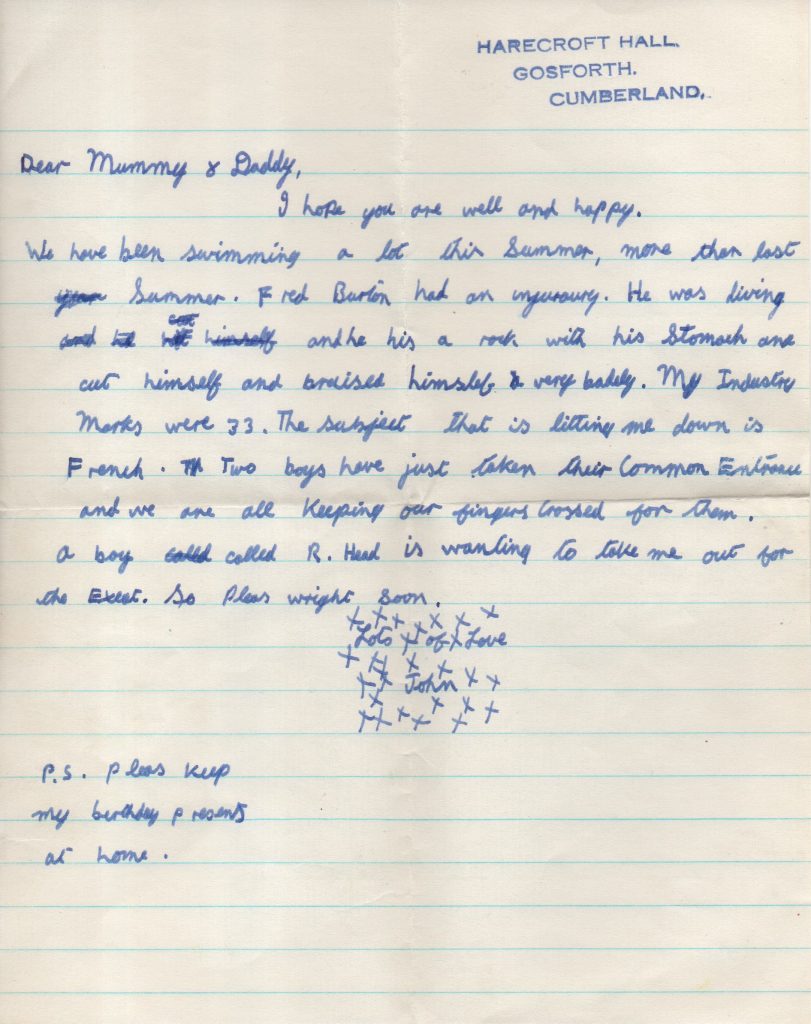 HARECROFT HALL.
GOSFORTH.
CUMBERLAND.
Dear Mummy & Daddy,
I hope you are well and happy.
We have been swimming a lot this Summer, more than last
year Summer. Fred Burton had an injuraury. He was diving
and himself and he his a rock with his Stomach and
cut himself and bruised himslef very badely. My Industry
Marks were 33. The subject that is litting me down is
French. Two boys have just taken their Common Entrance
and we are all Keeping our fingers Crossed for them.
a boy called called R. Head is wanting to take me out for
the Exeat. So Pleas wright soon.
Lots of Love
John
P.S. Pleas Keep
my birthday presents
at home.